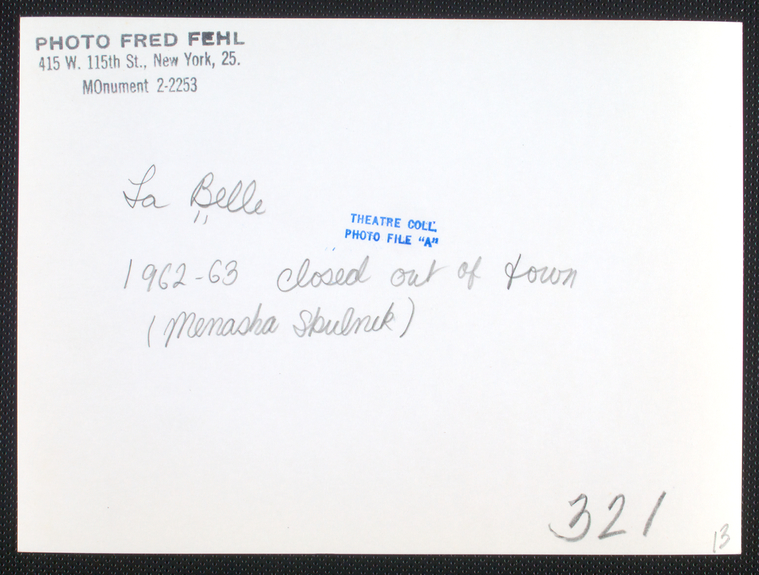 PHOTO FRED FEHL
415 W. 115th St., New York, 25.
MOnument 2-2253
La Belle
THEATRE COLL.
PHOTO FILE "A"
1962-63 closed out of town
(Menasha Skulnik)
321
13